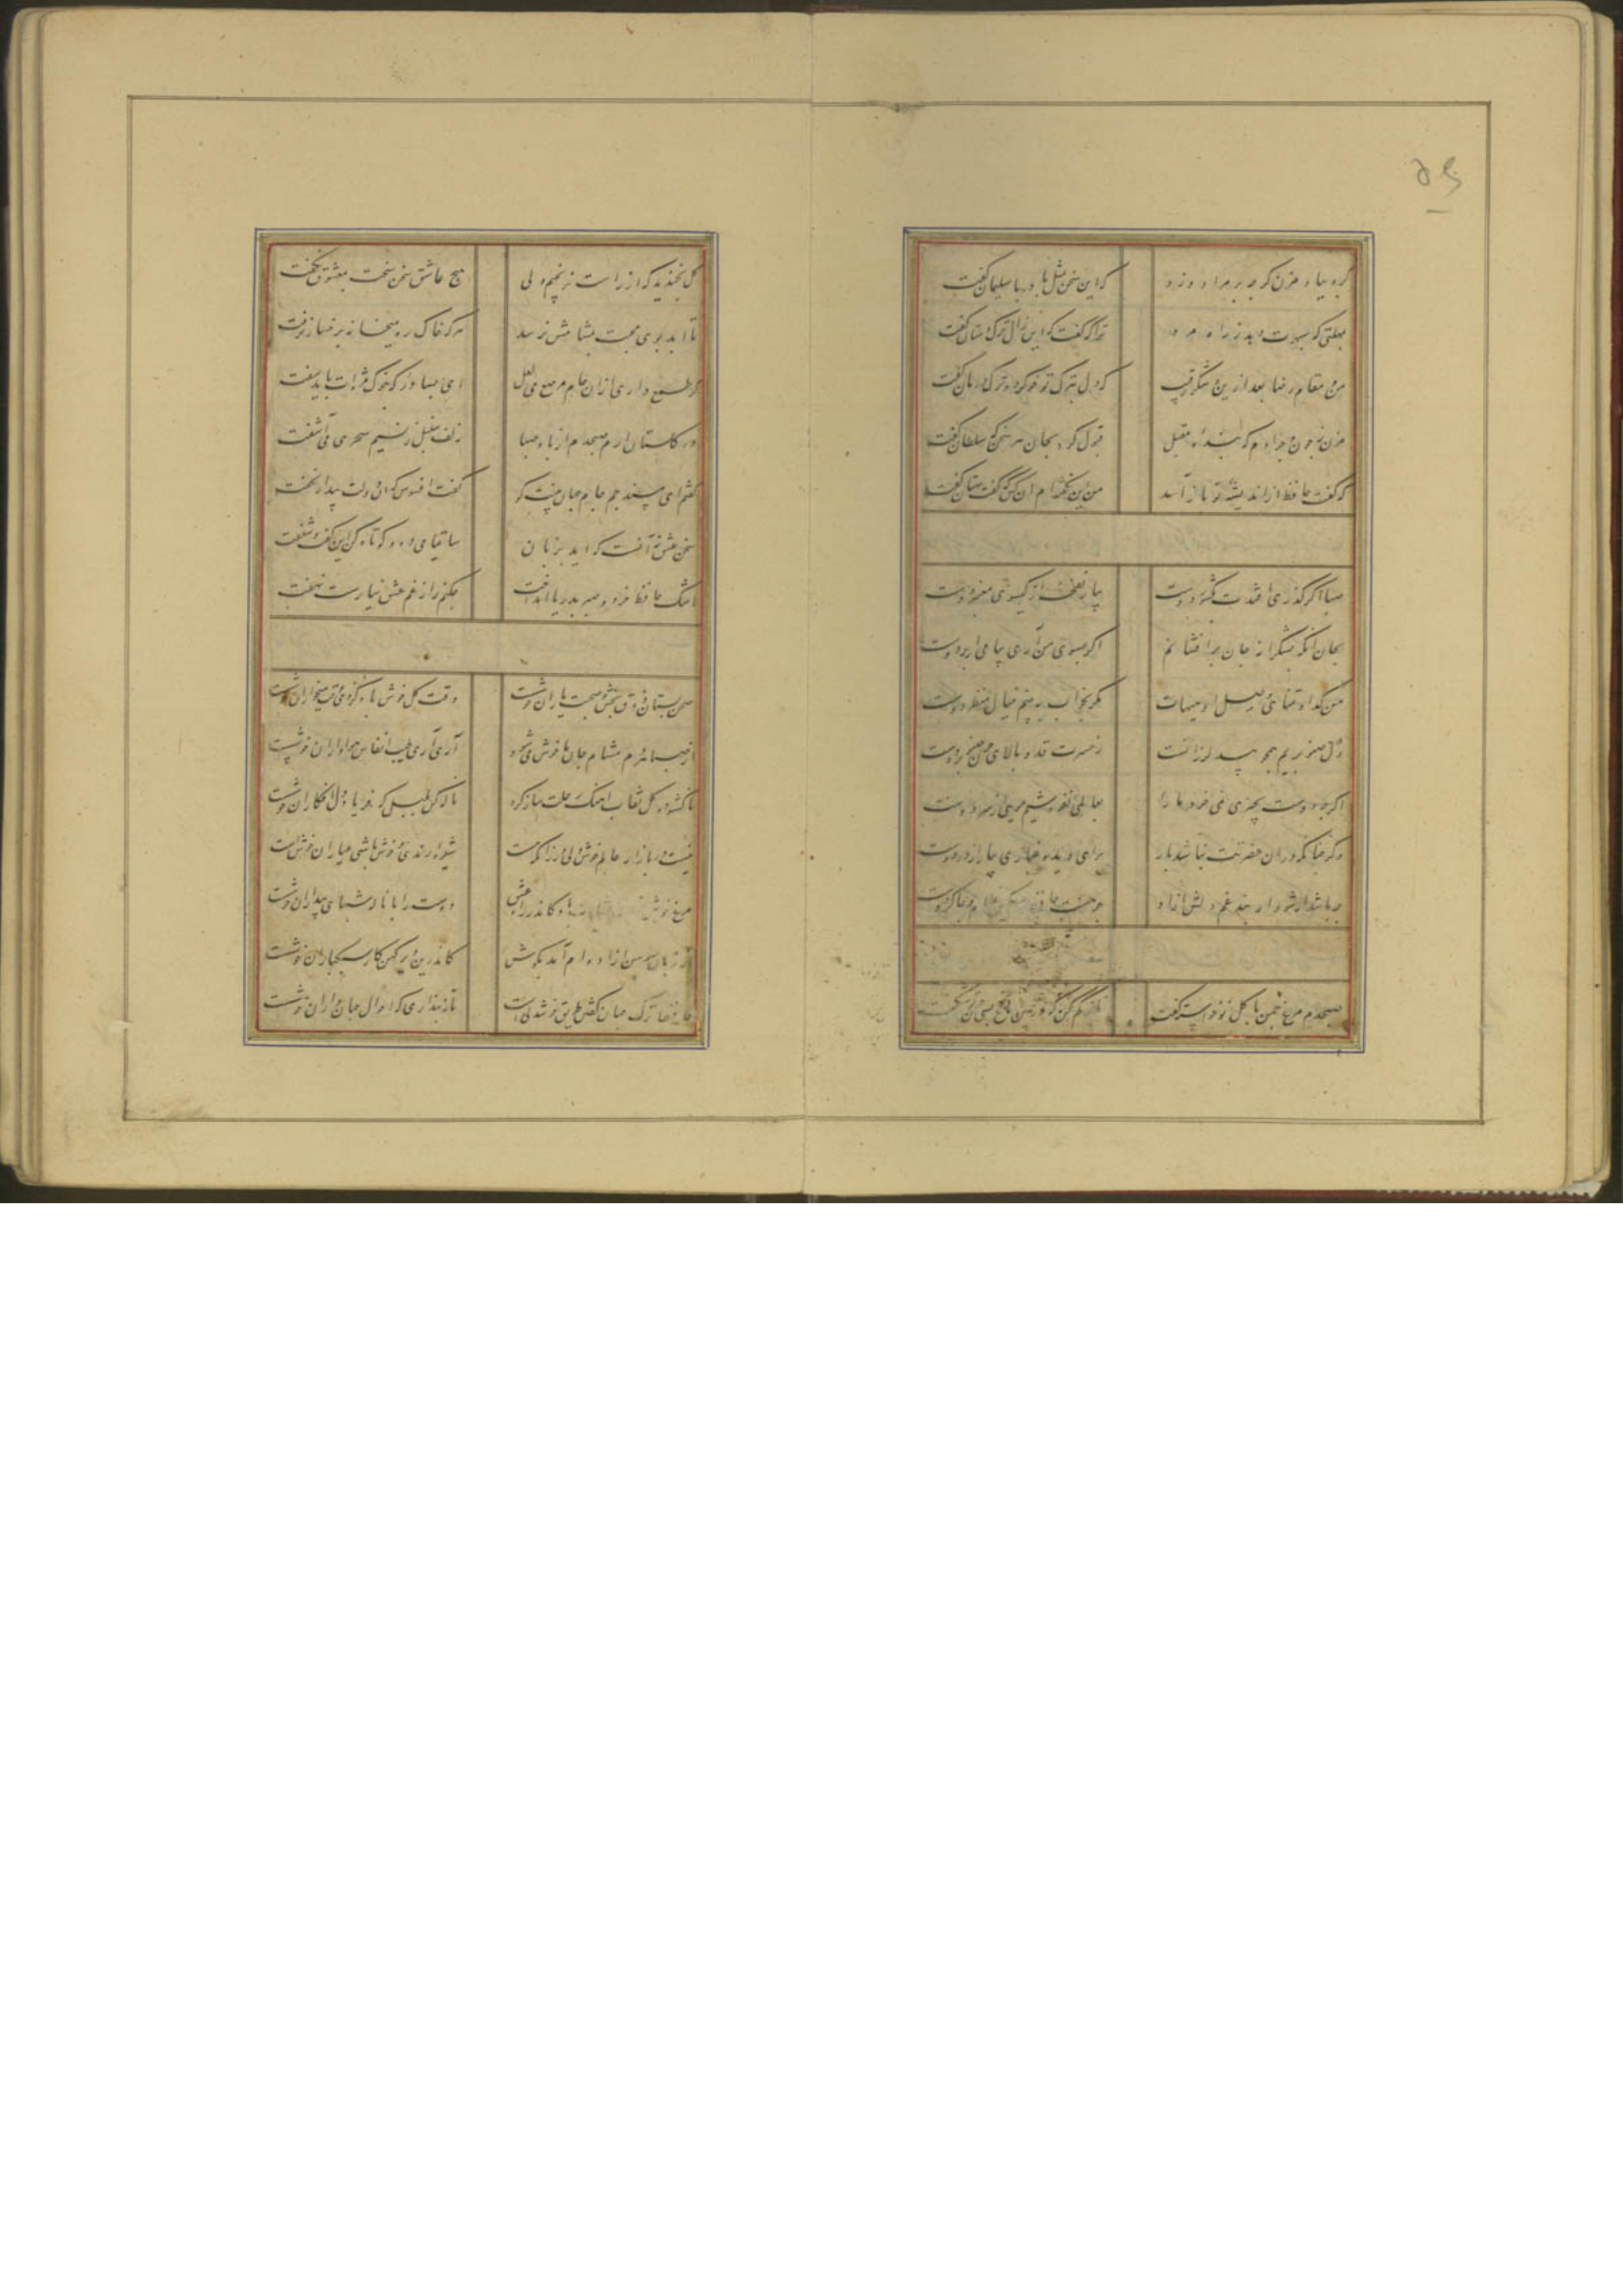 ۵۹
گره بباد مزن گرچه بر مراد وزد که این سخن بمثل باد با سلیمان گفت
بمهلتی که سپهرت دهد ز راه مرو ترا که گفت که این زال ترک دستان گفت
من و مقام رضا بعد ازین و شکر رقیب که دل بدرد تو خو کرد و ترک درمان گفت
مزن ز چون و چرا دم که بنده مقبل قبول کرد بجان هر سخن که سلطان گفت
که گفت حافظ از اندیشه تو باز آمد من این نگفته‌ام آن کس که گفت بهتان گفت
صبا اگر گذری افتدت بکشور دوست بیار نفحه از گیسوی معنبر دوست
بجان او که بشکرانه جان برافشانم اگر بسوی من آری پیامی از بر دوست
من گدا و تمنای وصل او هیهات مگر بخواب ببینم خیال منظر دوست
دل صنوبریم همچو بید لرزانست ز حسرت قد و بالای چون صنوبر دوست
اگرچه دوست بچیزی نمی‌خرد ما را بعالمی نفروشیم مویی از سر دوست
وگر چنانکه در آن حضرتت نباشد بار برای دیده بیاور غباری از در دوست
چه باشد ار شود از بند غم دلش آزاد چو هست حافظ مسکین غلام و چاکر دوست
صبحدم مرغ چمن با گل نوخاسته گفت ناز کم کن که درین باغ بسی چون تو شکفت
گل بخندید که از راست نرنجیم ولی هیچ عاشق سخن سخت بمعشوق نگفت
تا ابد بوی محبت بمشامش نرسد هر که خاک ره میخانه برخساره نرفت
گر طمع داری ازان جام مرصع می لعل ای بسا در که بنوک مژه‌ات باید سفت
در گلستان ارم صبحدم از باد صبا زلف سنبل ز نسیم سحری می‌آشفت
گفتم ای مسند جم جام جهان‌بینت کو گفت افسوس که آن دولت بیدار بخفت
سخن عشق نه آنست که آید بزبان ساقیا می ده و کوتاه کن این گفت و شنفت
اشک حافظ خرد و صبر بدریا انداخت چکنم راز غم عشق نیارست نهفت
صحن بستان ذوق بخش و صحبت یاران خوشست وقت گل خوش باد کز وی وقت میخواران خوشست
از صبا هر دم مشام جان ما خوش می‌شود آری آری طیب انفاس هواداران خوشست
ناگشوده گل نقاب آهنگ رحلت ساز کرد ناله کن بلبل که فریاد دل افکاران خوشست
نیست در بازار عالم خوشدلی ور زانکه هست شیوه رندی و خوش باشی عیاران خوش است
مرغ خوشخوان را بشارت باد کاندر راه عشق دوست را با ناله شبهای بیداران خوشست
از زبان سوسن آزاده‌ام آمد بگوش کاندرین دیر کهن کار سبکباران خوشست
حافظا ترک جهان گفتن طریق خوشدلیست تا نپنداری که احوال جهانداران خوشست